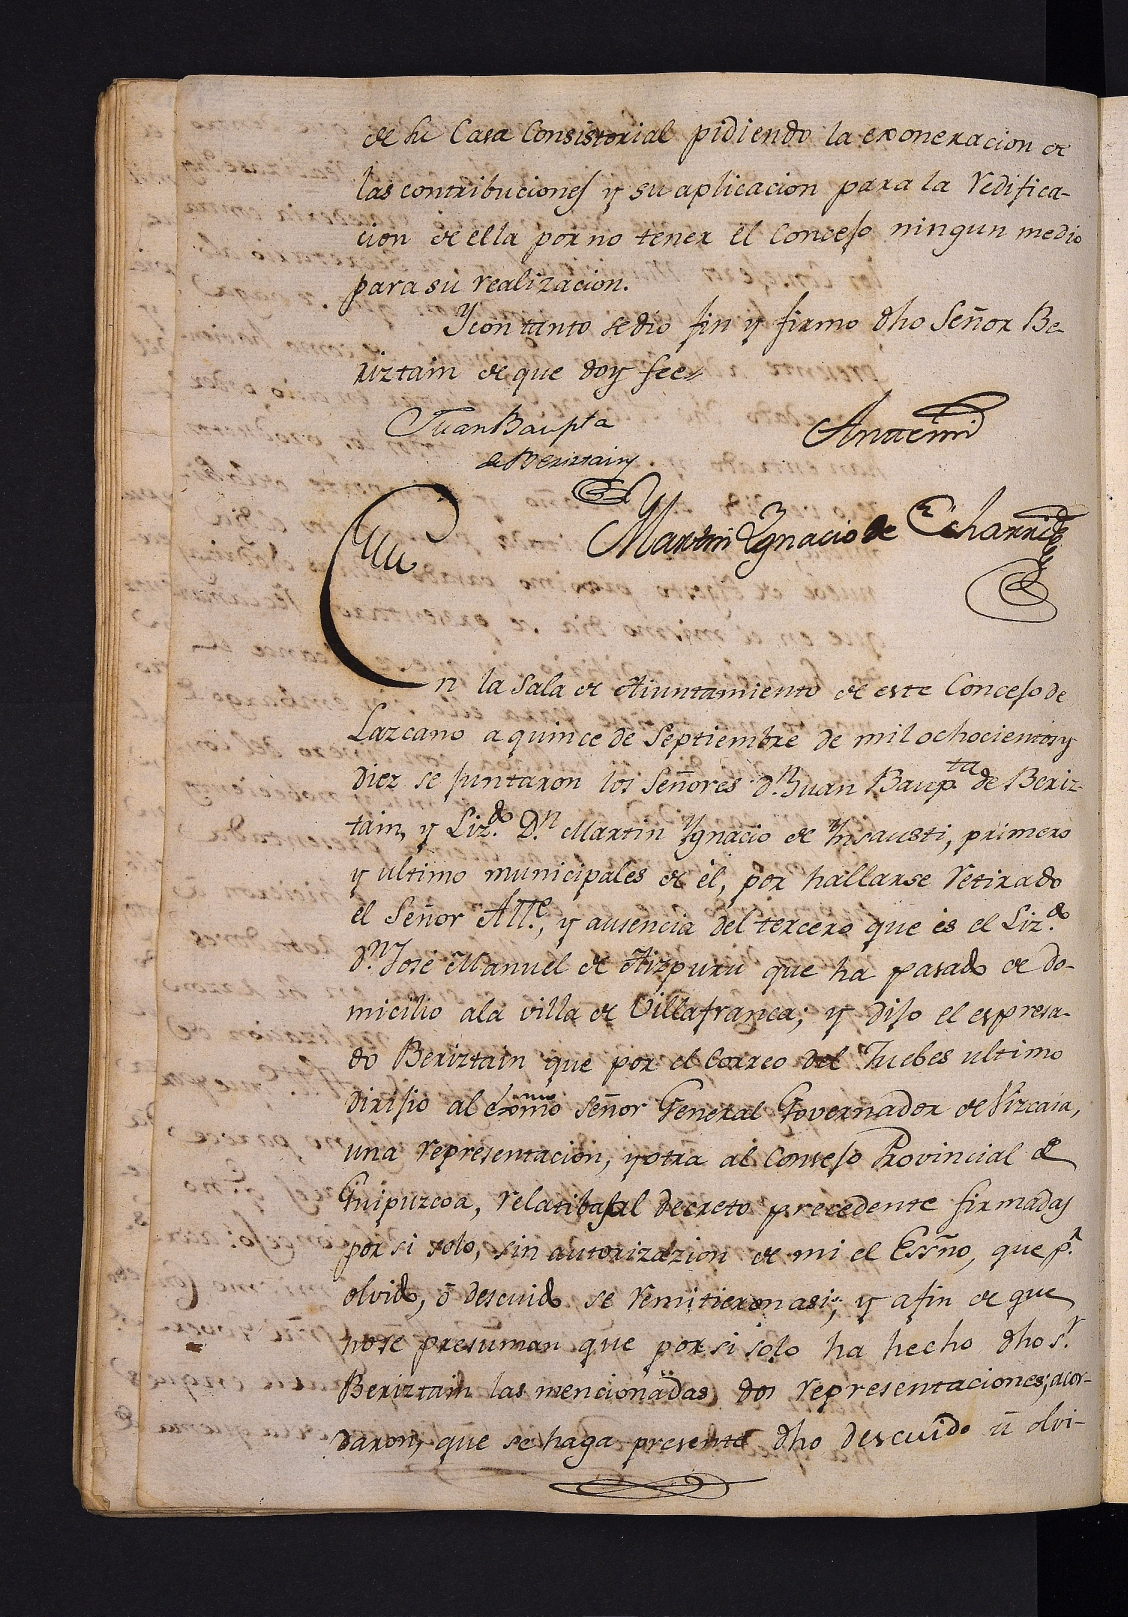 de la Casa Consistorial pidiendo la exoneracion de
las contribuciones y su aplicacion para la redifica-
cion de ella por no tener el Concejo ningun medio
para su realizacion.
Y con tanto se dio fin y firmo dho Señor Be-
riztain de que doy fee
Juan Baupta
de Beriztain
Antemi
Martin Ygnacio de Echarri
En la Sala de Aiuntamiento de este Concejo de
Lazcano a quince de Septiembre de mil ochocientos y
diez se juntaron los Señores dn. Juan Baupta. de Beriz-
tain, y Lizdo. Dn. Martin Ygnacio de Ynsausti, primero
y ultimo municipales de èl, por hallarse retirado
el Señor Alle., y ausencia del tercero que es el Lizdo.
dn. Jose Manuel de Aizpuru que ha pasado de do-
micilio ala villa de Villafranca; y dijo el espresa-
do Beriztain que por el Correo del Juebes ultimo
dirijio al exmo Señor General Governador de Vizcaia,
una representacion, y otra al Consejo Provincial de
Guipuzcoa, relatibas al decreto precedente firmadas
por si solo, sin autorizazion de mi el Essño, que pr.
olvido, ō descuido se remitieron asi; y afin de que
no se presuman que por si solo ha hecho dho Sr.
Beriztain las mencionadas dos representaciones, acor-
daron, que se haga presente dho descuido ū olvi-